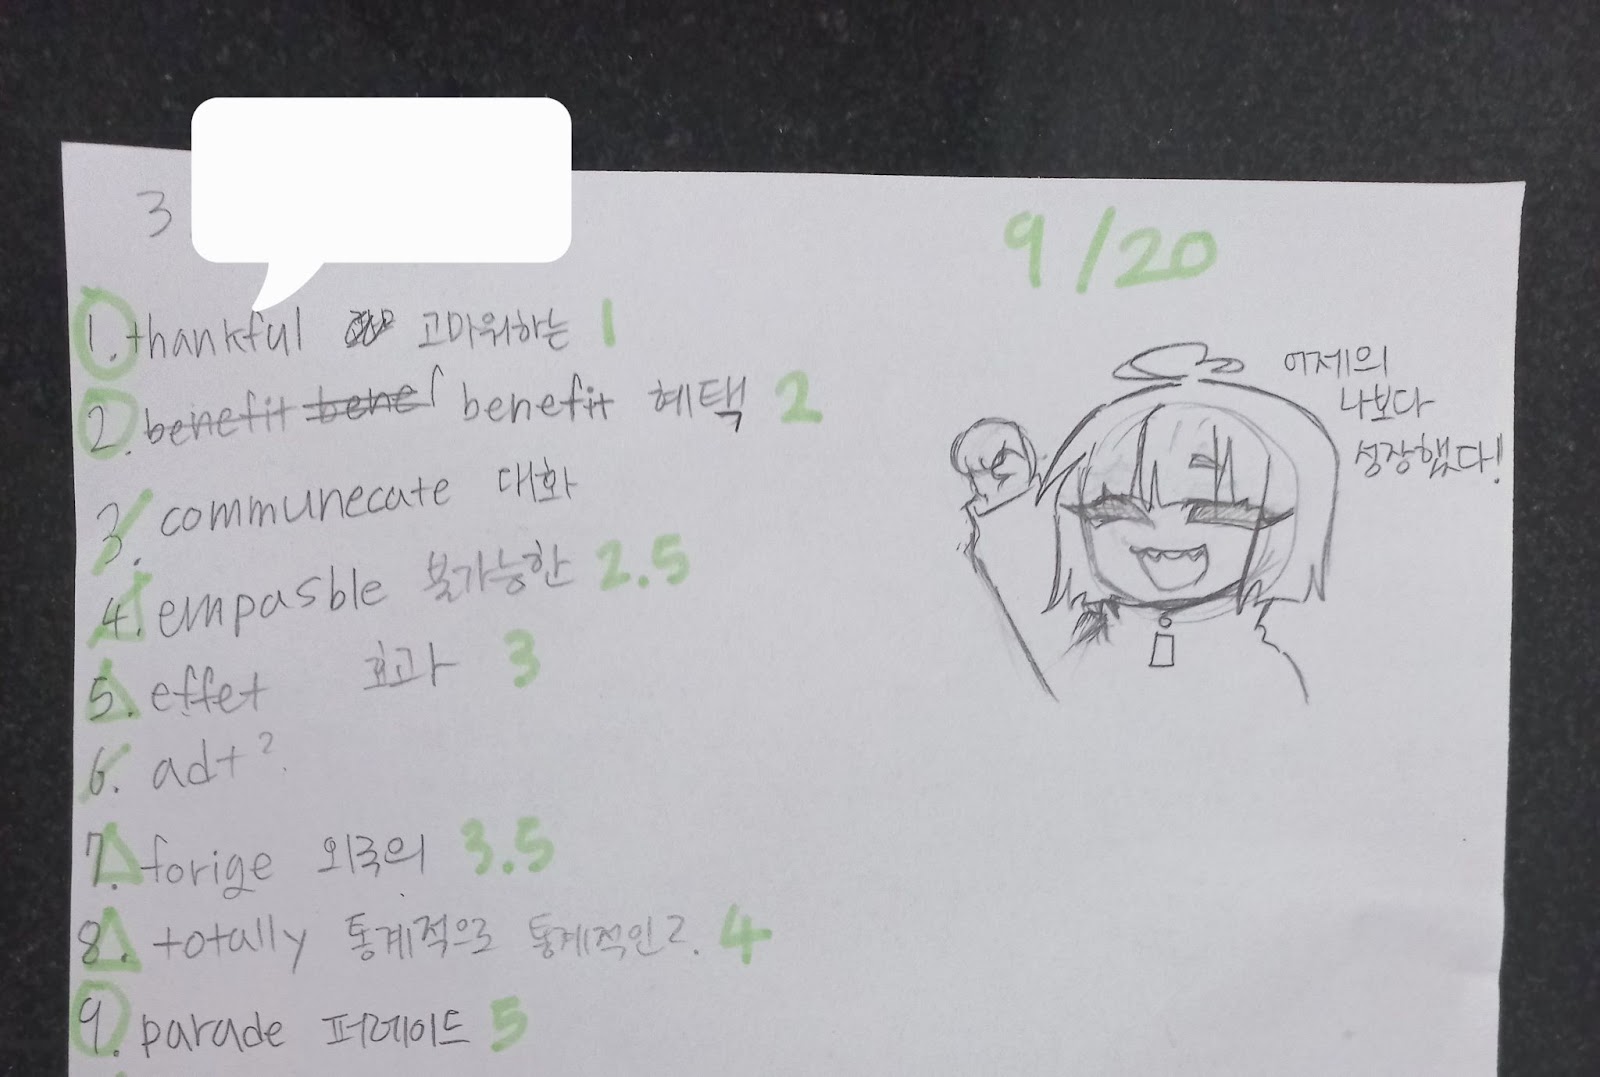 3
9/20
1. thankful 고마워하는 1
2. benefit bene benefit 혜택 2
3. communecate 대화
4. empasble 불가능한 2.5
5. effet 효과 3
6. adt?
7. forige 외국의 3.5
8. totally 통계적으로 통계적인? 4
9. parade 퍼레이드 5
어제의
나보다
성장했다!